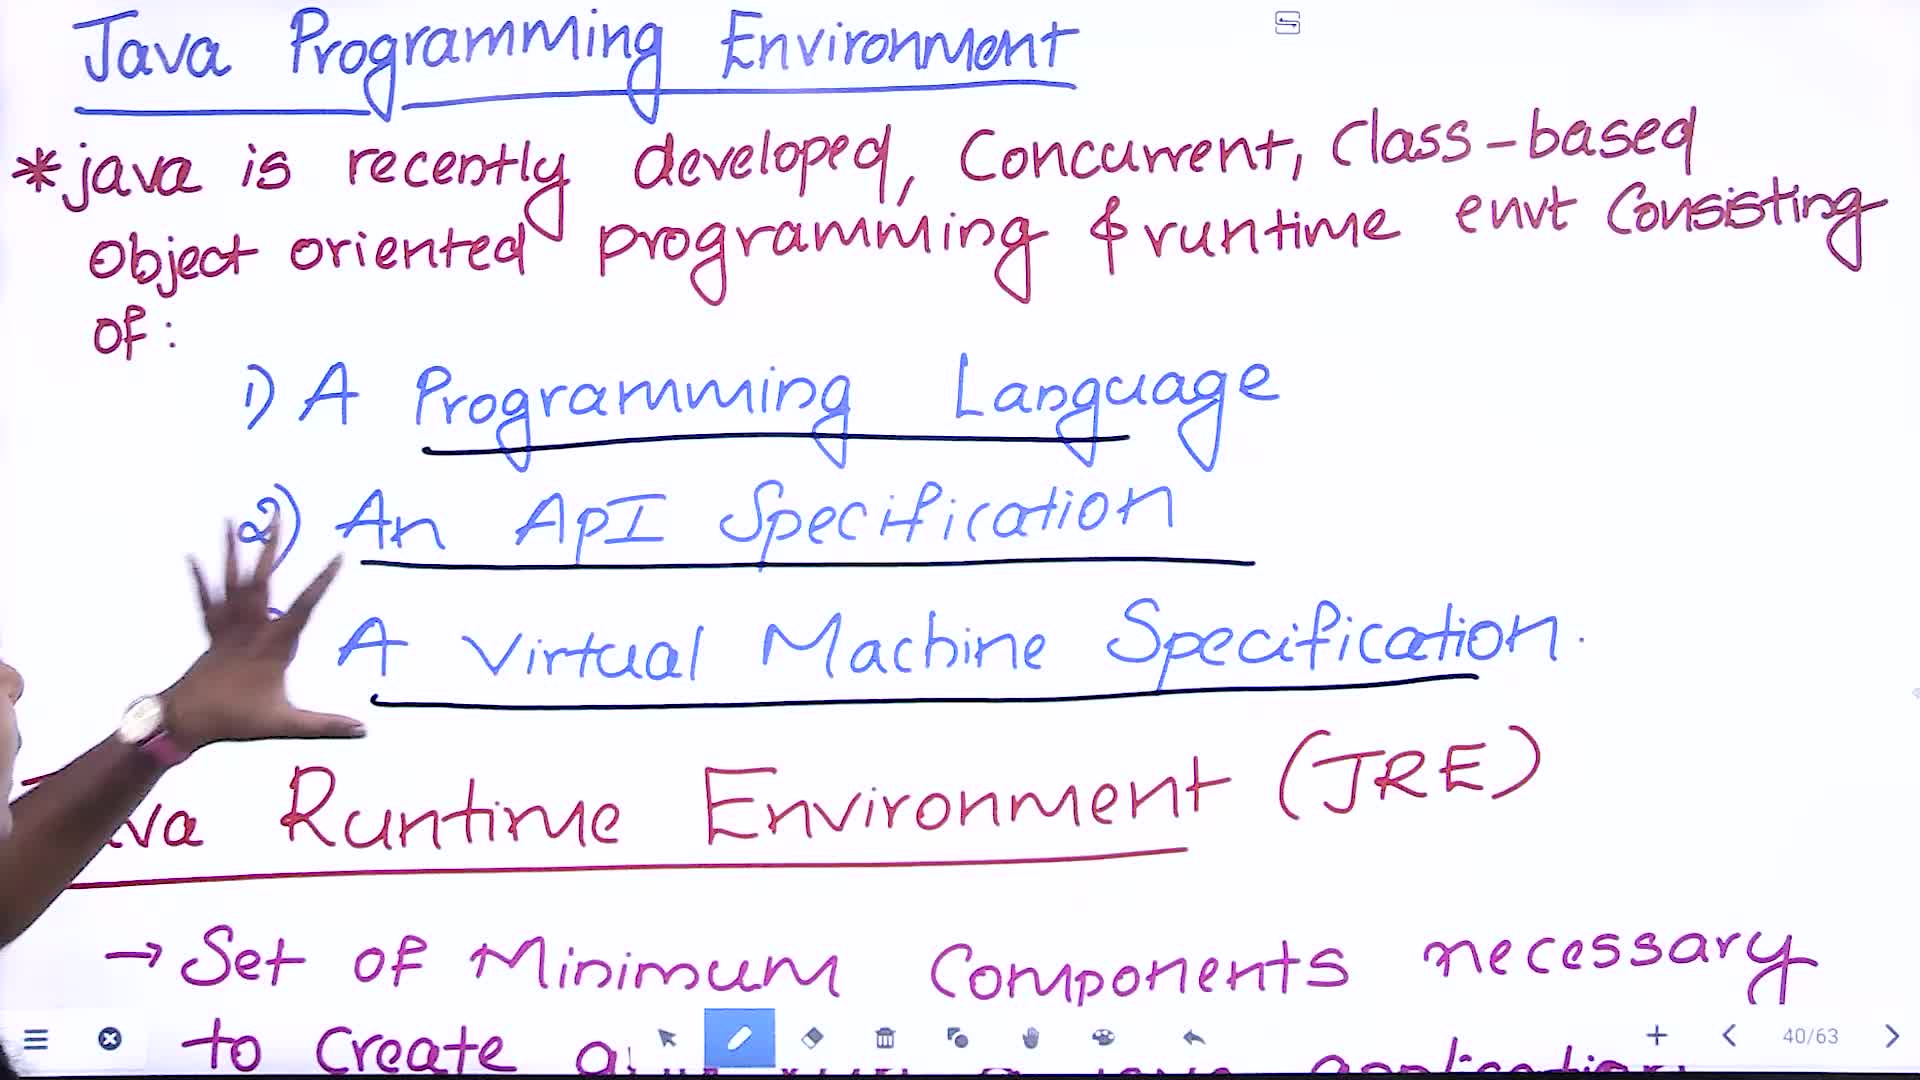 Java Programming Environment
*java is recently developed, Concurrent, Class-based
Object oriented programming & runtime envt Consisting
of:
1) A Programming Language
2) An ApI Specification
A Virtual Machine Specification.
Runtime Environment (JRE)
→ Set of Minimum Components necessary
to Create application
40/63